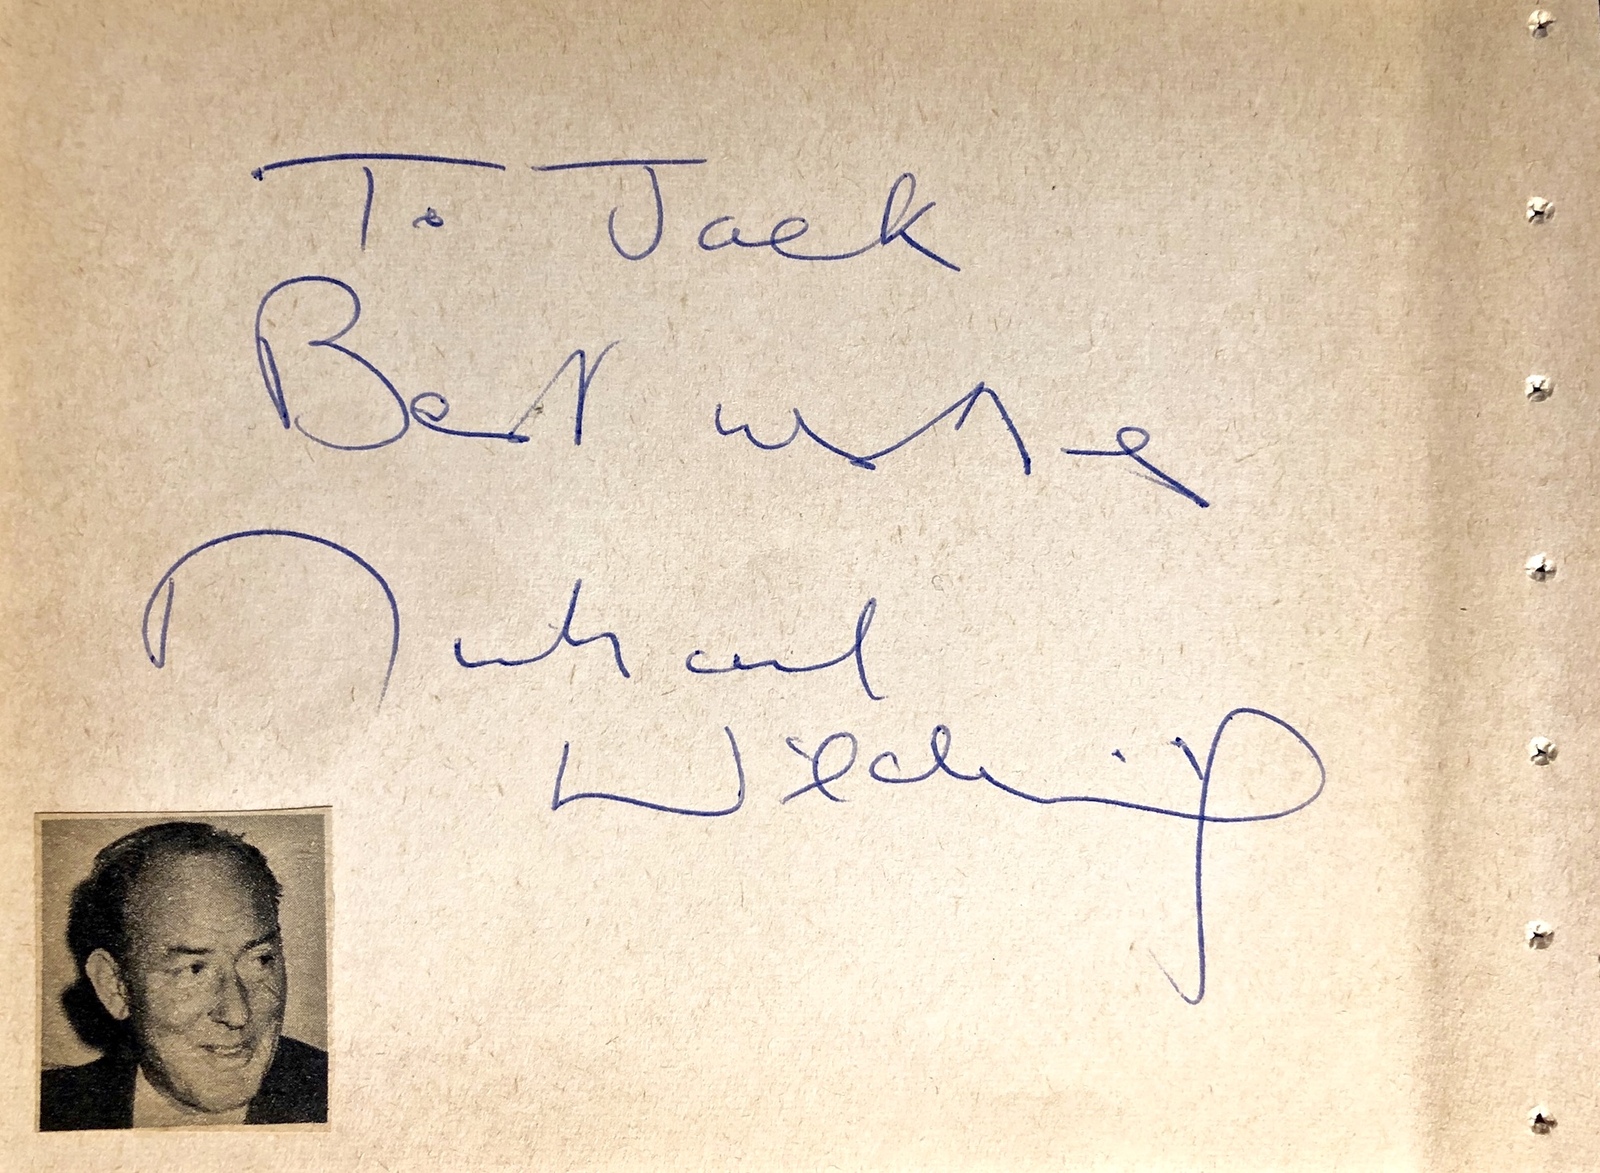 To Jack
Best wishes
Michael
Wilding